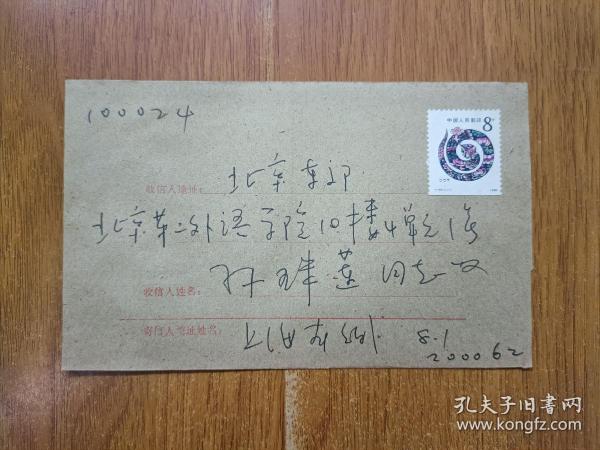 100024
中国人民邮政 8分
收信人地址: 北京东郊
北京第二外语学院10楼4单元1号
收信人姓名: 孙 莲 同志收
寄信人地址姓名: 上海 8.1
200062
孔夫子旧书网
www.kongfz.com